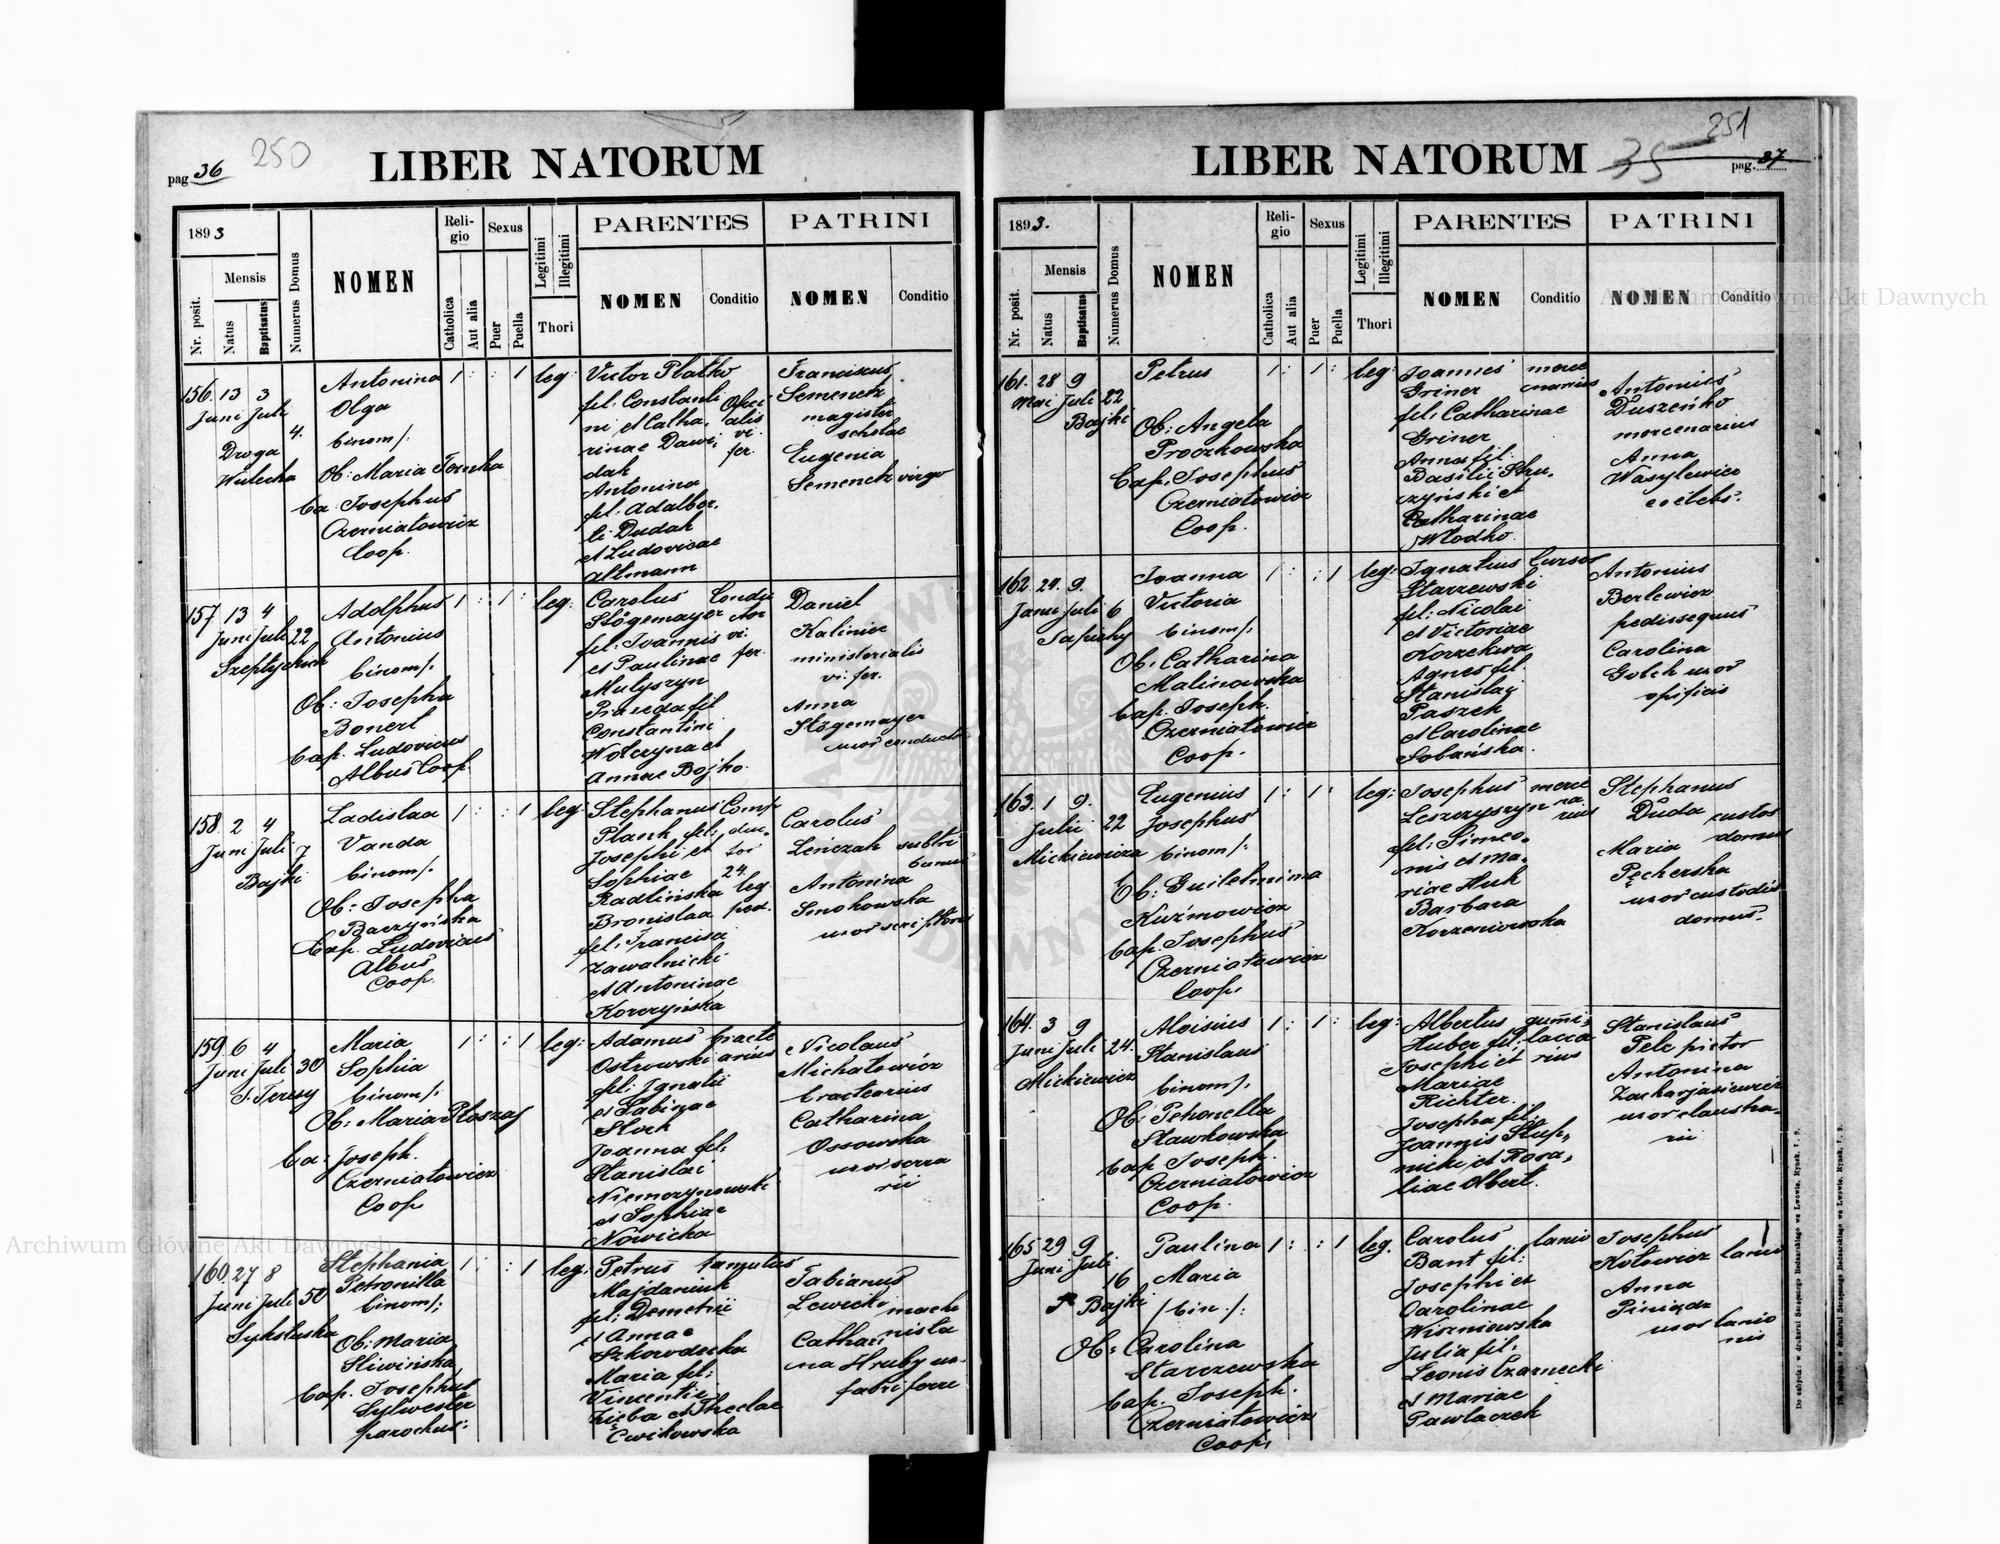 pag 36
250
LIBER NATORUM
1893
Nr. posit.
Mensis
Natus
Baptisatus
Numerus Domus
NOMEN
Religio
Catholica
Aut alia
Sexus
Puer
Puella
Legitimi
Illegitimi
Thori
PARENTES
NOMEN
Conditio
PATRINI
NOMEN
Conditio
156. 13 3
Juni Juli
4.
Droga
Wulecka
Antonina
Olga
binom/:
Ob: Maria
Ca: Josephus
Czerniatowicz
Coop.
1 : : 1
leg:
Victor Platko
fil: Constanti
ni et Catha,
rinae Dawi,
dak
Antonina
fil: Adalber,
ti Dudak
et Ludovicae
Altmann
Offici
alis
vi.
fer.
Franciscus
Semenetz
magister
scholae
Eugenia
Semenetz virgo
157 13 4
Juni Juli 22
Szeptyckich
Adolphus
Antonius
binom/:
Ob: Josepha
Bonert
Cap. Ludovicus
Albus Coop.
1 : 1 :
leg:
Carolus
Stögemayer
fil: Joannis
et Paulinae
Mulyszyn
Praxeda fil
Constantini
Wołczyna et
Annae Bojko.
Condu
ctor
vi.
fer.
Daniel
Kaliniec
ministerialis
vi. fer.
Anna
Stögemayer
uxor conducto
158. 2 4
Juni Juli 7
Bajki
Ladislaa
Vanda
binom/:
Ob: Josepha
Baczyńska
Cap. Ludovicus
Albus
Coop.
1 : : 1
leg:
Stephanus
Plank fil:
Josephi et
Sophiae
Radlińska
Bronislaa
fil: Francisci
Zawalnicki
et Antoninae
Korczyńska
Comp
duc
tor
24.
leg.
ped.
Carolus
Leńczak subtri
bunus
Antonina
Smokowska
uxor scriptoris
159. 6 4
Juni Juli 30
S. Teresy
Maria
Sophia
binom/:
Ob: Maria Płoszaj
Ca: Joseph.
Czerniatowicz
Coop
1 : : 1
leg:
Adamus bracte
Ostrowski arius
fil: Ignatii
et Sabinae
Stock
Joanna fil:
Stanislai
Niemczynowski
et Sophiae
Nowicka
Nicolaus
Michałowicz
bractearius
Catharina
Ossowska
uxor serra
rii
160. 27 8
Juni Juli 50
Sykstuska
Stephania
Petronilla
binom/:
Ob: Maria
Śliwińska
Cap. Josephus
Sylwester
parochus:
1 : : 1
leg:
Petrus famulus
Majdaniuk
fil: Demetrii
et Annae
Szkowdecka
Maria fil:
Vincentii
Zięba et Theclae
Ćwikowska
Fabianus
Lewicki mach
nista
Cathari
na Hruby ux
fabri ferre
251
LIBER NATORUM
35
pag. 37
1893.
Nr. posit.
Mensis
Natus
Baptisatus
Numerus Domus
NOMEN
Religio
Catholica
Aut alia
Sexus
Puer
Puella
Legitimi
Illegitimi
Thori
PARENTES
NOMEN
Conditio
PATRINI
NOMEN
Conditio
161. 28 9
Mai Juli 22
Bajki
Petrus
Ob: Angela
Proczkowska
Cap. Josephus
Czerniatowicz
Coop.
1 : 1 :
leg:
Joannes merce
Griner narius
fil: Catharinae
Griner
Anna fil:
Basilii Stru,
czyński et
Catharinae
Włodko.
Antonius
Duszeńko
mercenarius
Anna
Wasylewicz
coelebs.
162. 24. 9.
Juni Juli 6
Sapiehy
Joanna
Victoria
binom/:
Ob: Catharina
Malinowska
Cap. Joseph.
Czerniatowicz
Coop.
1 : : 1
leg:
Ignatius Cursor
Starzewski
fil: Nicolai
et Victoriae
Korzekwa
Agnes fil:
Stanislai
Paszek
et Carolinae
Sobańska.
Antonius
Berlewicz
pedissequus
Carolina
Golch uxor
opificis
163. 1 9.
Julii 22
Mickiewicza
Eugenius
Josephus
binom/:
Ob: Guilelmina
Kuźmowicz
Cap. Josephus
Czerniatowicz
Coop.
1 : 1 :
leg:
Josephus merce
Leszczyszyn na
rius
fil: Simeo,
nis et Ma,
riae Huk
Barbara
Korzeniowska
Stephanus
Duda custos
domus
Maria
Pęcherska
uxor custodis
domus.
164. 3 9
Juni Juli 24.
Mickiewicz
Aloisius
Stanislaus
binom/:
Ob: Petronella
Sławkowska
Cap. Joseph.
Czerniatowicz
Coop.
1 : 1 :
leg:
Albertus
Huber fil:
Josephi et
Mariae
Richter.
Josepha fil:
Joannis Słup,
nicki et Rosa,
liae Olbert.
Stanislaus
Pelc pictor
Antonina
Zacharjasiewicz
uxor claustra,
rii
165 29 9
Juni Juli
16
Bajki
Paulina
Maria
/bin./:
Ob: Carolina
Starczewska
Cap. Joseph.
Czerniatowicz
Coop.
1 : : 1
leg.
Carolus lanio
Bant fil:
Josephi et
Carolinae
Wiszniowska
Julia fil:
Leonis Czarnecki
et Mariae
Pawlaczek
Josephus
Kotowicz lanio
Anna
Pieniądz
uxor lanio
nis
Do nabycia: w drukarni Szczęsnego Bednarskiego we Lwowie, Rynek, l. 9.
Archiwum Główne Akt Dawnych
Archiwum Główne Akt Dawnych